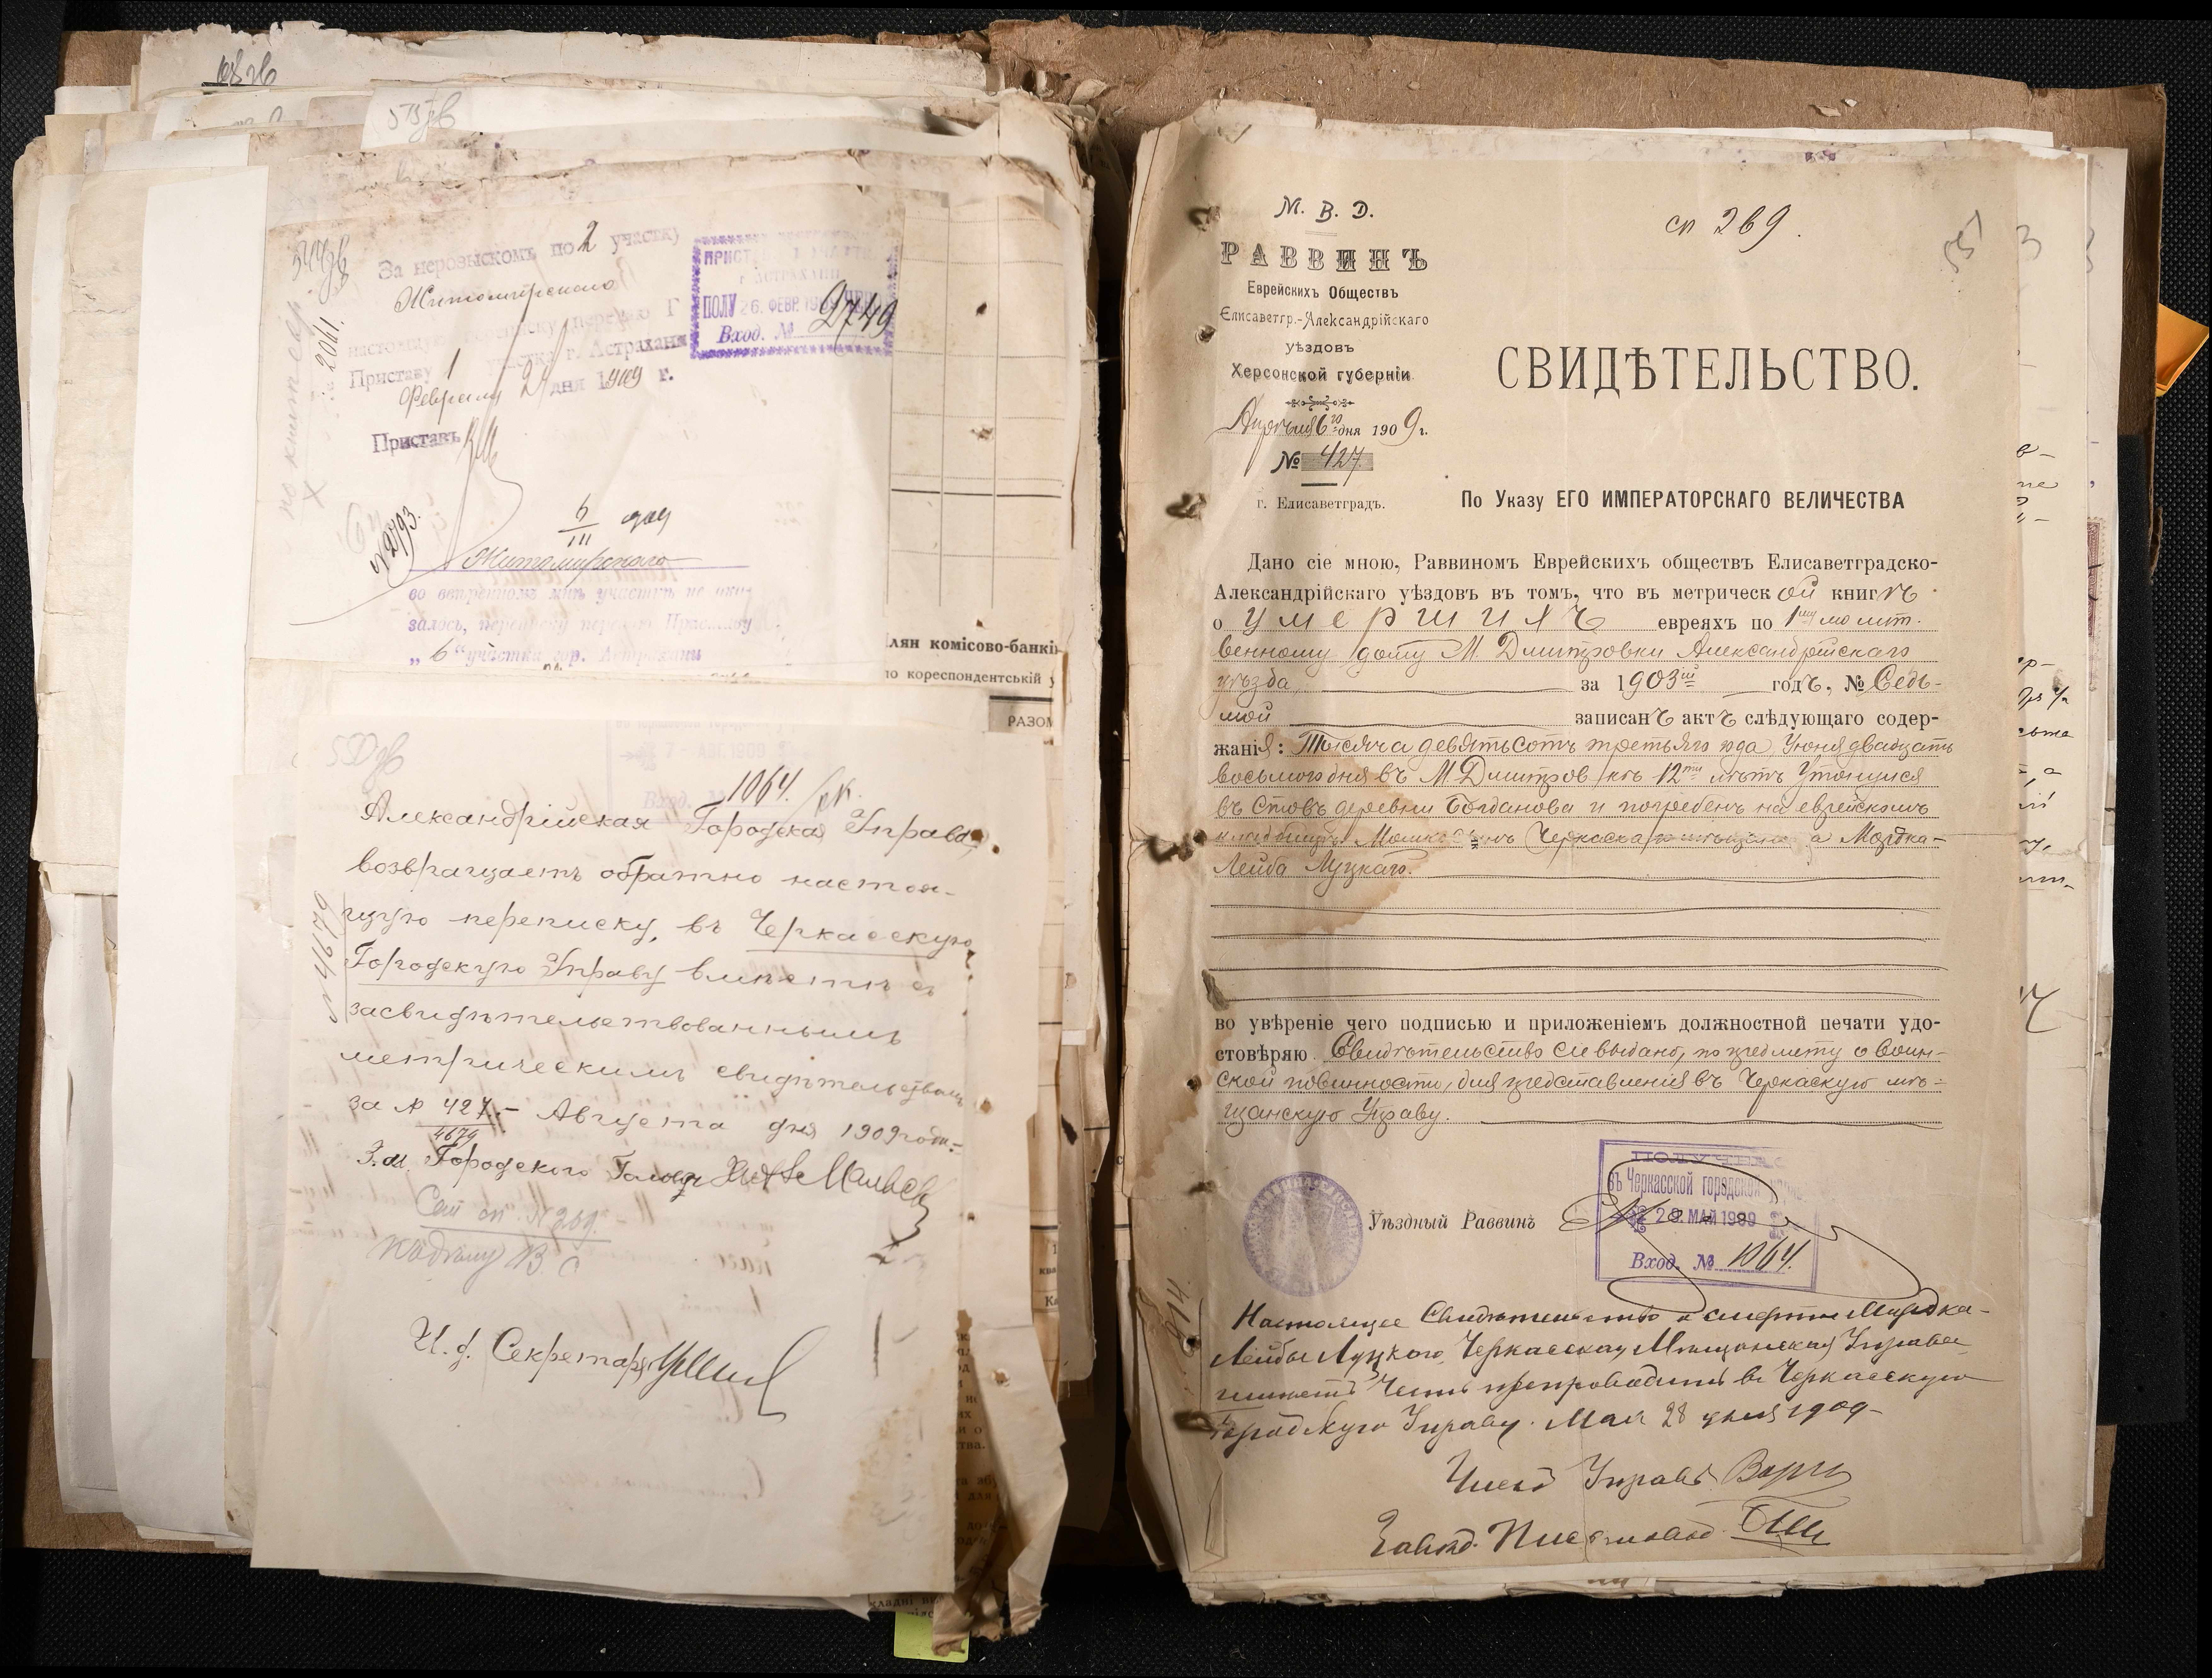 573 зв
544 зв
За нерозыскомъ по 2 участку
Житомирскаго
переписку
Приставу 1 участка г. Астрахани
Февраля дня 1909 г.
Приставъ
2041.
ПОЛУ 26. ФЕВР. 1909
Вход. № 2749
№ 2793.
6/III 909
Житомирскаго
во ввѣренномъ мнѣ участкѣ не ока-
залось, переписку передаю Приставу
„6“ участка гор. Астрахани
лян комісово-банкі
по кореспондентській у
РАЗОМ
7 - АВГ. 1909
Вход. № 1064.
Александрійская Городская Управа,
возвращаетъ обратно настоя-
щую переписку, въ Черкасскую
Городскую Управу вмѣстѣ съ
засвидѣтельствованнымъ
метрическимъ свидѣтельствомъ
за № 427.- Августа дня 1909 года.-
4679
№ 4679
З. м. Городского Головы
Сем сп. № 269.
И. д. Секретаря
М. В. Д.
сп 269.
РАВВИНЪ
Еврейскихъ Обществъ
Елисаветгр.-Александрійскаго
уѣздовъ
Херсонской губерніи
Апрѣля 6го дня 1909 г.
№ 427.
г. Елисаветградъ.
СВИДѢТЕЛЬСТВО.
По Указу ЕГО ИМПЕРАТОРСКАГО ВЕЛИЧЕСТВА
Дано сіе мною, Раввиномъ Еврейскихъ обществъ Елисаветградско-
Александрійскаго уѣздовъ въ томъ, что въ метрической книгѣ
о умершихъ евреяхъ по 1му молит.
венному дому М. Дмитровки Александрійскаго
уѣзда за 1903ій годъ, № Седь-
мой записанъ актъ слѣдующаго содер-
жанія: Тысяча девятьсотъ третьяго года, Іюня двадцать
восьмого дня въ М. Дмитровкѣ 12ти лѣтъ Утонулся
въ Ставѣ деревни Богданова и погребенъ на еврейскомъ
кладбищѣ Черкасск а Мордка-
Лейба Луцкаго.
во увѣреніе чего подписью и приложеніемъ должностной печати удо-
стовѣряю Свидѣтельство сіе выдано, по предмету о воин-
ской повинности, для представленія въ Черкаскую мѣ-
щанскую Управу.
Уѣздный Раввинъ
ПОЛУЧЕНО
въ Черкасской городской упр.
29. МАЙ 1909
Вход. № 1064.
Настоящее Свидѣтельство о смерти Мордка-
Лейбы Луцкого, Черкасская Мѣщанская Управа
имѣетъ честь препроводить въ Черкасскую
Городскую Управу. Мая 28 дня 1909
№ 814
Членъ Управы
Завѣд. Письмовод.